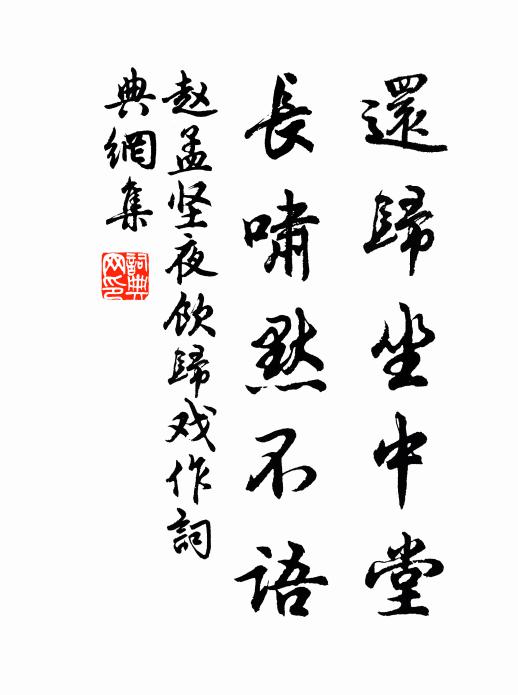 還歸坐中堂
長嘯默不語
赵孟坚夜飲歸戏作詞
典網集
詞典网印